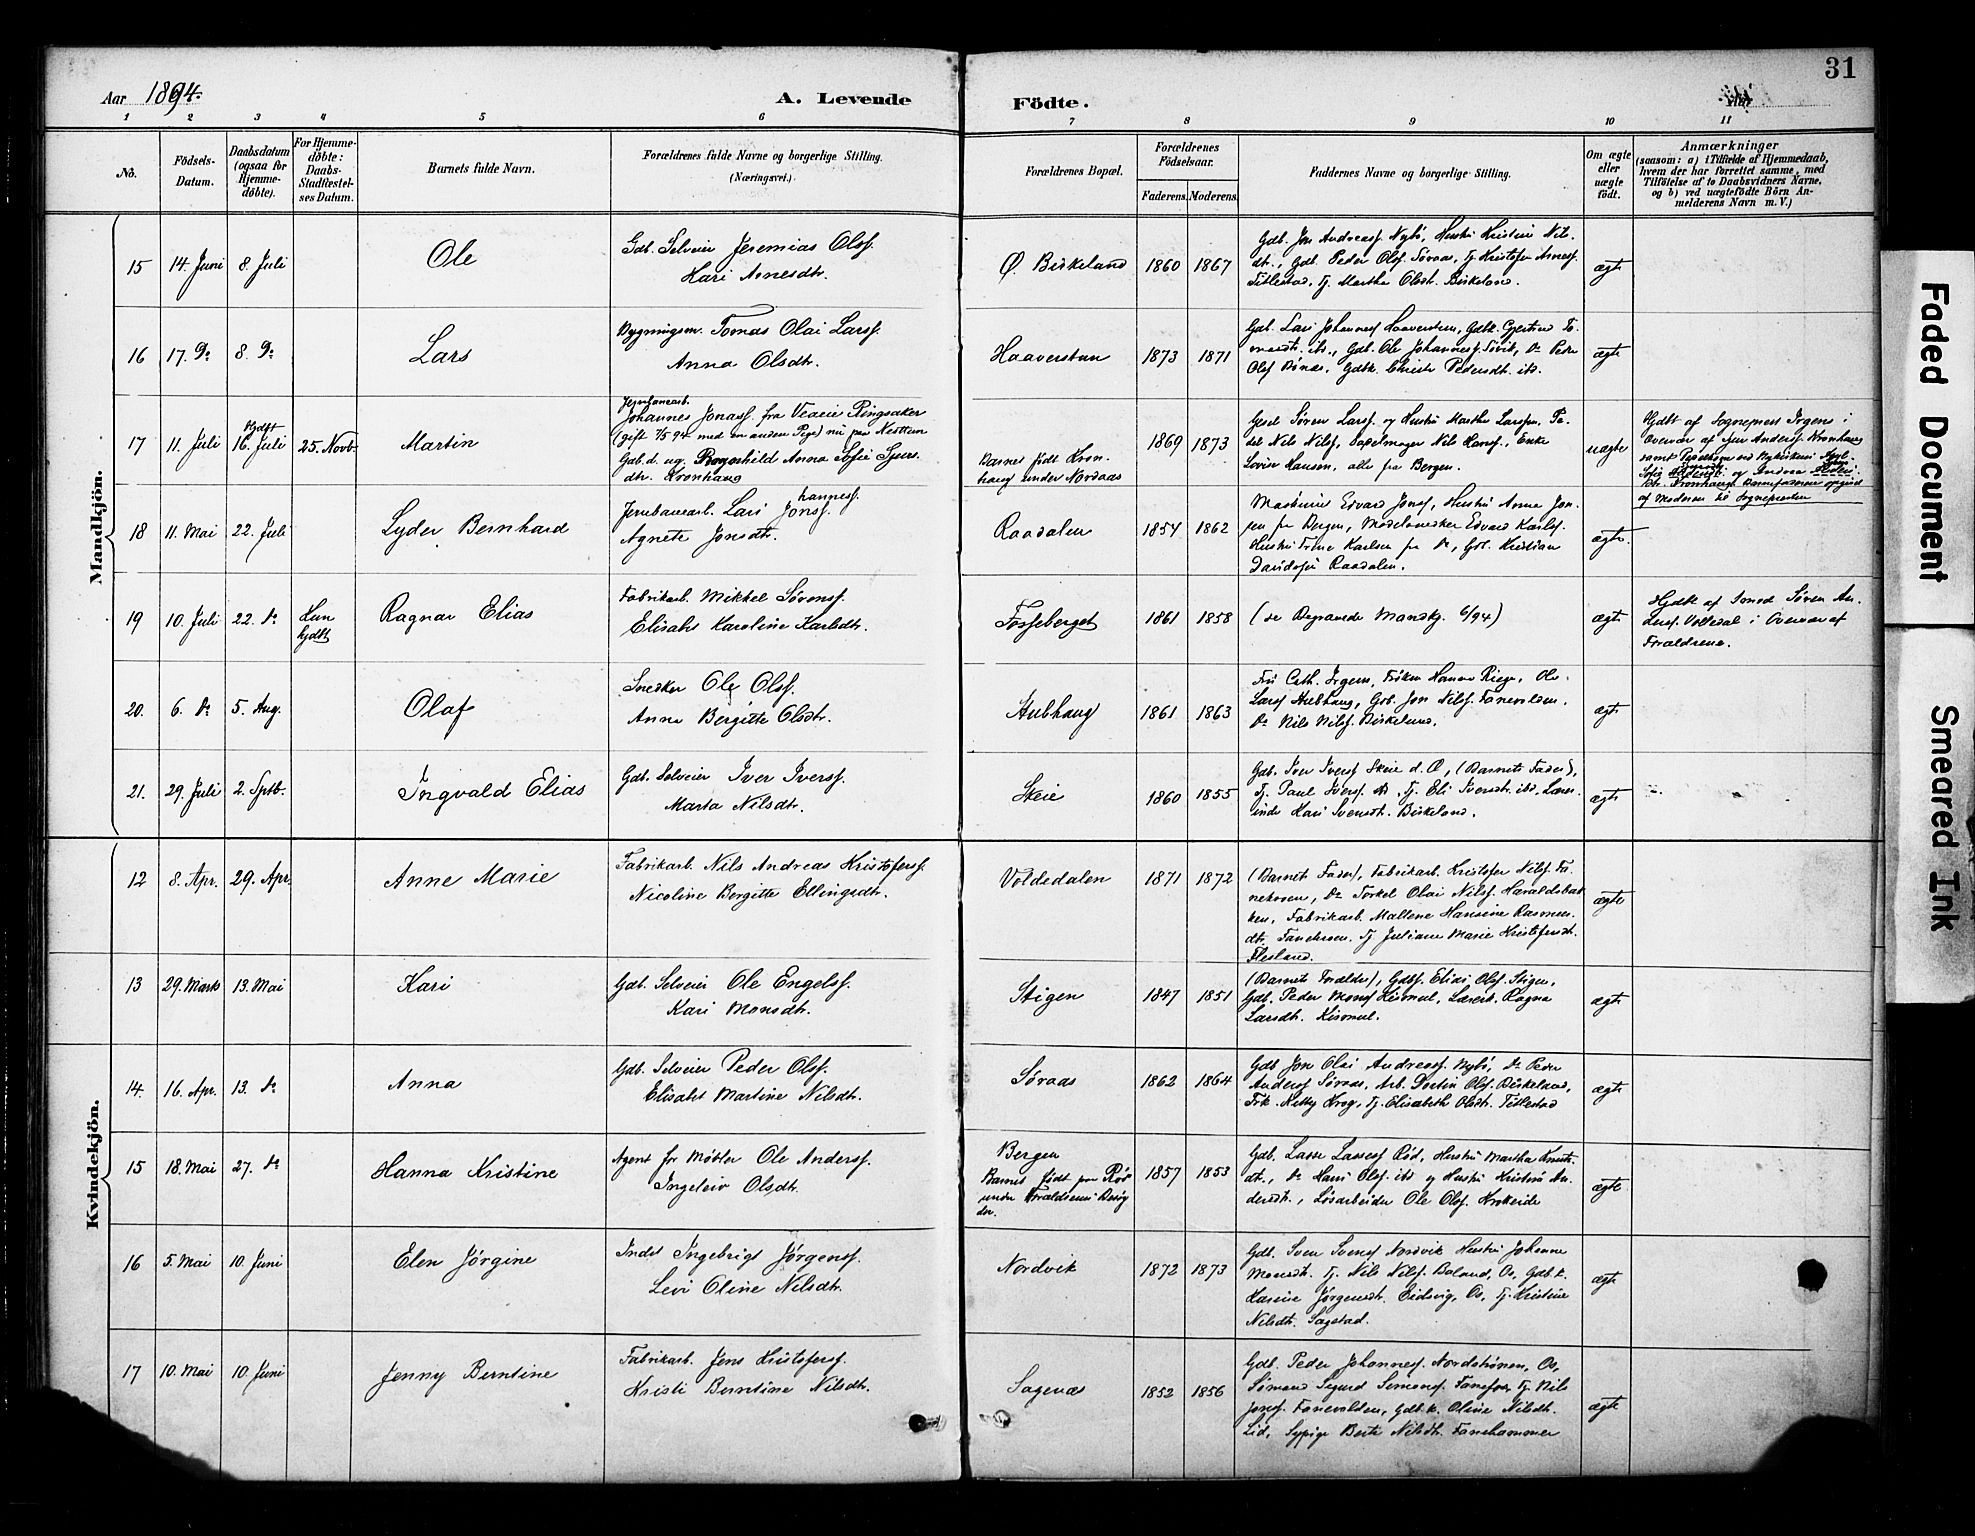 31
Aar 1894.
A. Levende Födte.
1 2 3 4 5 6 7 8 9 10 11
No.
Födsels-Datum.
Daabsdatum (ogsaa for Hjemmedöbte).
For Hjemmedöbte: Daabs-Stadfæstelses Datum.
Barnets fulde Navn.
Forældrenes fulde Navne og borgerlige Stilling. (Næringsvei.)
Forældrenes Bopæl.
Forældrenes Födselsaar.
Faderens. Moderens.
Faddernes Navne og borgerlige Stilling.
Om ægte eller uægte født.
Anmærkninger
(saasom: a) i Tilfælde af Hjemmedaab, hvem der har forrettet samme, med Tilföielse af to Daabsvidners Navne, og b) ved uægtefödte Börn Anmelderens Navn m. V.)
Mandkjön.
15 14. Juni 8. Juli Ole
Gdb. Selveier Jeremias Olsf.
Kari Arnesdtr.
Ø. Birkeland 1860 1867
Gdb. Jon Andreasf. Nybö, Hustru Kristine Nils-
dt., Gdb. Peder Olsf. Söraas, Tj. Kristofer Arnesf.
Titlestad, Tj. Martha Olsdt. Birkeland.
ægte
16 17. Do 8. Do Lars
Bygningsm. Tomas Olai Larsf.
Anna Olsdtr.
Haaverstun 1873 1871
Gdb. Lars Johannesf. Haaverstun, Gdbk. Gjertrud To-
masdt. ibd., Gdb. Ole Johannesf. Sörit, Do Peder
Olsf. Bönæs, Gdbk. Christi Pedersdt. ibd.
ægte
17 11. Juli Hjdt 16. Juli 25. Novb. Martin
Jernbanearb.
Johannes Jonasf. fra Veaeie Ringsaker
(gift 7/5 94 med en anden Pige) nu paa Nesttun
Gdb.d. ug. Ragnhild Anna Sofie Sjurs-
dtr. Kronhaug
Barnet född Kron-
haug under Nordaas
1869 1873
Gesl Sören Larsf. og Hustru Marthe Larsen, Fa-
del Nils Nilsf., Sadelmager Nils Hansf., Enke
Lovise Hansen, alle fra Bergen.
uægte
Hjdt af Sognepræst Irgens i
Overvær af Sjur Andersf. Kronhaug
af Moderen til Sognepresten
18 11. Mai 22. Juli Lyder Bernhard
Jernbanearb. Lars Johannesf.
Agnete Jonsdtr.
Raadalen 1854 1862
Maskinist Edvard Jonsf., Hustru Anna Jon-
sen fra Bergen, Modelsnedker Edvard Karlsf.
Hustru Trine Karlsen fra Do, Gbr. Kristian
Davidsen Raadalen.
ægte
19 10. Juli 22. Do Kun hjdt Ragnar Elias
Fabrikarb. Mikkel Sörensf.
Elisabet Karoline Karlsdtr.
Fosseberget 1861 1858
(se Begravede Mandkj. 6/94)
ægte
Hjdt af Smed Sören An-
dersf. Volledal i Overvær af
Forældrene.
20. 6. Do 5. Aug. Olaf
Snedker Ole Olsf.
Anna Bergitte Olsdtr.
Stubhaug 1861 1863
Fru Cath. Irgens, Fröken Hanna Riege, Ole
Larsf. Stubhaug, Gdb. Jon Nilsf. Fanevolden,
Do Nils Nilsf. Birkeland.
ægte
21. 29. Juli 2. Sptb. Ingvald Elias
Gdb. Selveier Iver Iversf.
Marta Nilsdtr.
Skeie 1860 1855
Gdb. Iver Iversf. Skeie d. Æ. (Barnets Fader),
Tj. Paul Iversf. ib., Tj. Eli Iversdt. ibd., Lærer-
inde Kari Svensdt. Birkeland.
ægte
Kvindekjön.
12 8. Apr. 29. Apr. Anne Marie
Fabrikarb. Nils Andreas Kristofersf.
Nicoline Bergitte Ellingsdtr.
Voldedalen 1871 1872
(Barnets Fader), Fabrikarb. Kristofer Nilsf. Fa-
nekroen, Do Torkel Olai Nilsf. Haraldsbak-
ken, Fabrikarb. Mallene Hansine Rasmus-
dtr. Fanekroen, Tj. Juliane Marie Kristofersdt.
Flesland.
ægte
13 29. Marts 13. Mai Kari
Gdb. Selveier Ole Engelsf.
Kari Monsdtr.
Stigen 1847 1851
(Barnets Forældre), Gdbf. Elias Olsf. Stigen,
Gdb. Peder Monsf. Kismul, Lærerk. Ragna
Larsdt. Kismul.
ægte
14. 16. Apr. 13. Do Anna
Gdb. Selveier Peder Olsf.
Elisabet Martine Nilsdtr.
Söraas 1862 1864
Gdb Jon Olai Andreasf. Nybö, Do Peder
Andersf. Söraas, Arb. Dortin Olsf. Birkeland,
Frk. Kitty Krog, Tj. Elisabeth Olsdtr. Titlestad
ægte
15 18. Mai 27. Do Hanna Kristine
Agent for Möbler Ole Andersf.
Ingeleiv Olsdtr.
Bergen
Barnet född paa Röd
under Forældrenes Besög
der.
1857 1853
Gdb. Lasse Lassesf Röd, Hustru Martha Knuts-
dt., Do Hans Olsf. ibd og Hustru Kristine An-
dersdt., Lösarbeider Ole Olsf. Krokeide
ægte
16 5. Mai 10. Juni Elen Jörgine
Inds Ingebrigt Jörgensf.
Levi Oline Nilsdtr.
Nordvik 1872 1873
Gdb. Sven Svensf Nordvik Hustru Johanne
Monsdt. Tj. Nils Nilsf. Boland, Os, Gdb.k.
Hansine Jörgensdt. Eidsvig, Os, Tj. Kristine
Nilsdt. Sagstad.
ægte
17 10. Mai 10. Juni Jenny Berntine
Fabrikarb. Jens Kristofersf.
Kristi Berntine Nilsdtr.
Sagenæs 1852 1856
Gdb. Peder Johannesf. Nordströnen, Os,
Sömand Sigurd Simonsf. Fanefos, Tj. Nils
Jonsf. Fanevolden, Gdb.k. Oline Nilsdtr.
Lid, Sypige Berte Nilsdt. Fanehammer
ægte
Faded Document
Smeared Ink